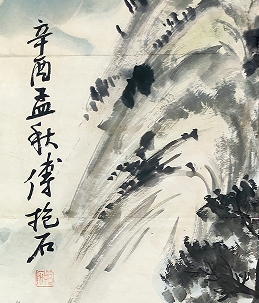 辛酉孟秋傅抱石